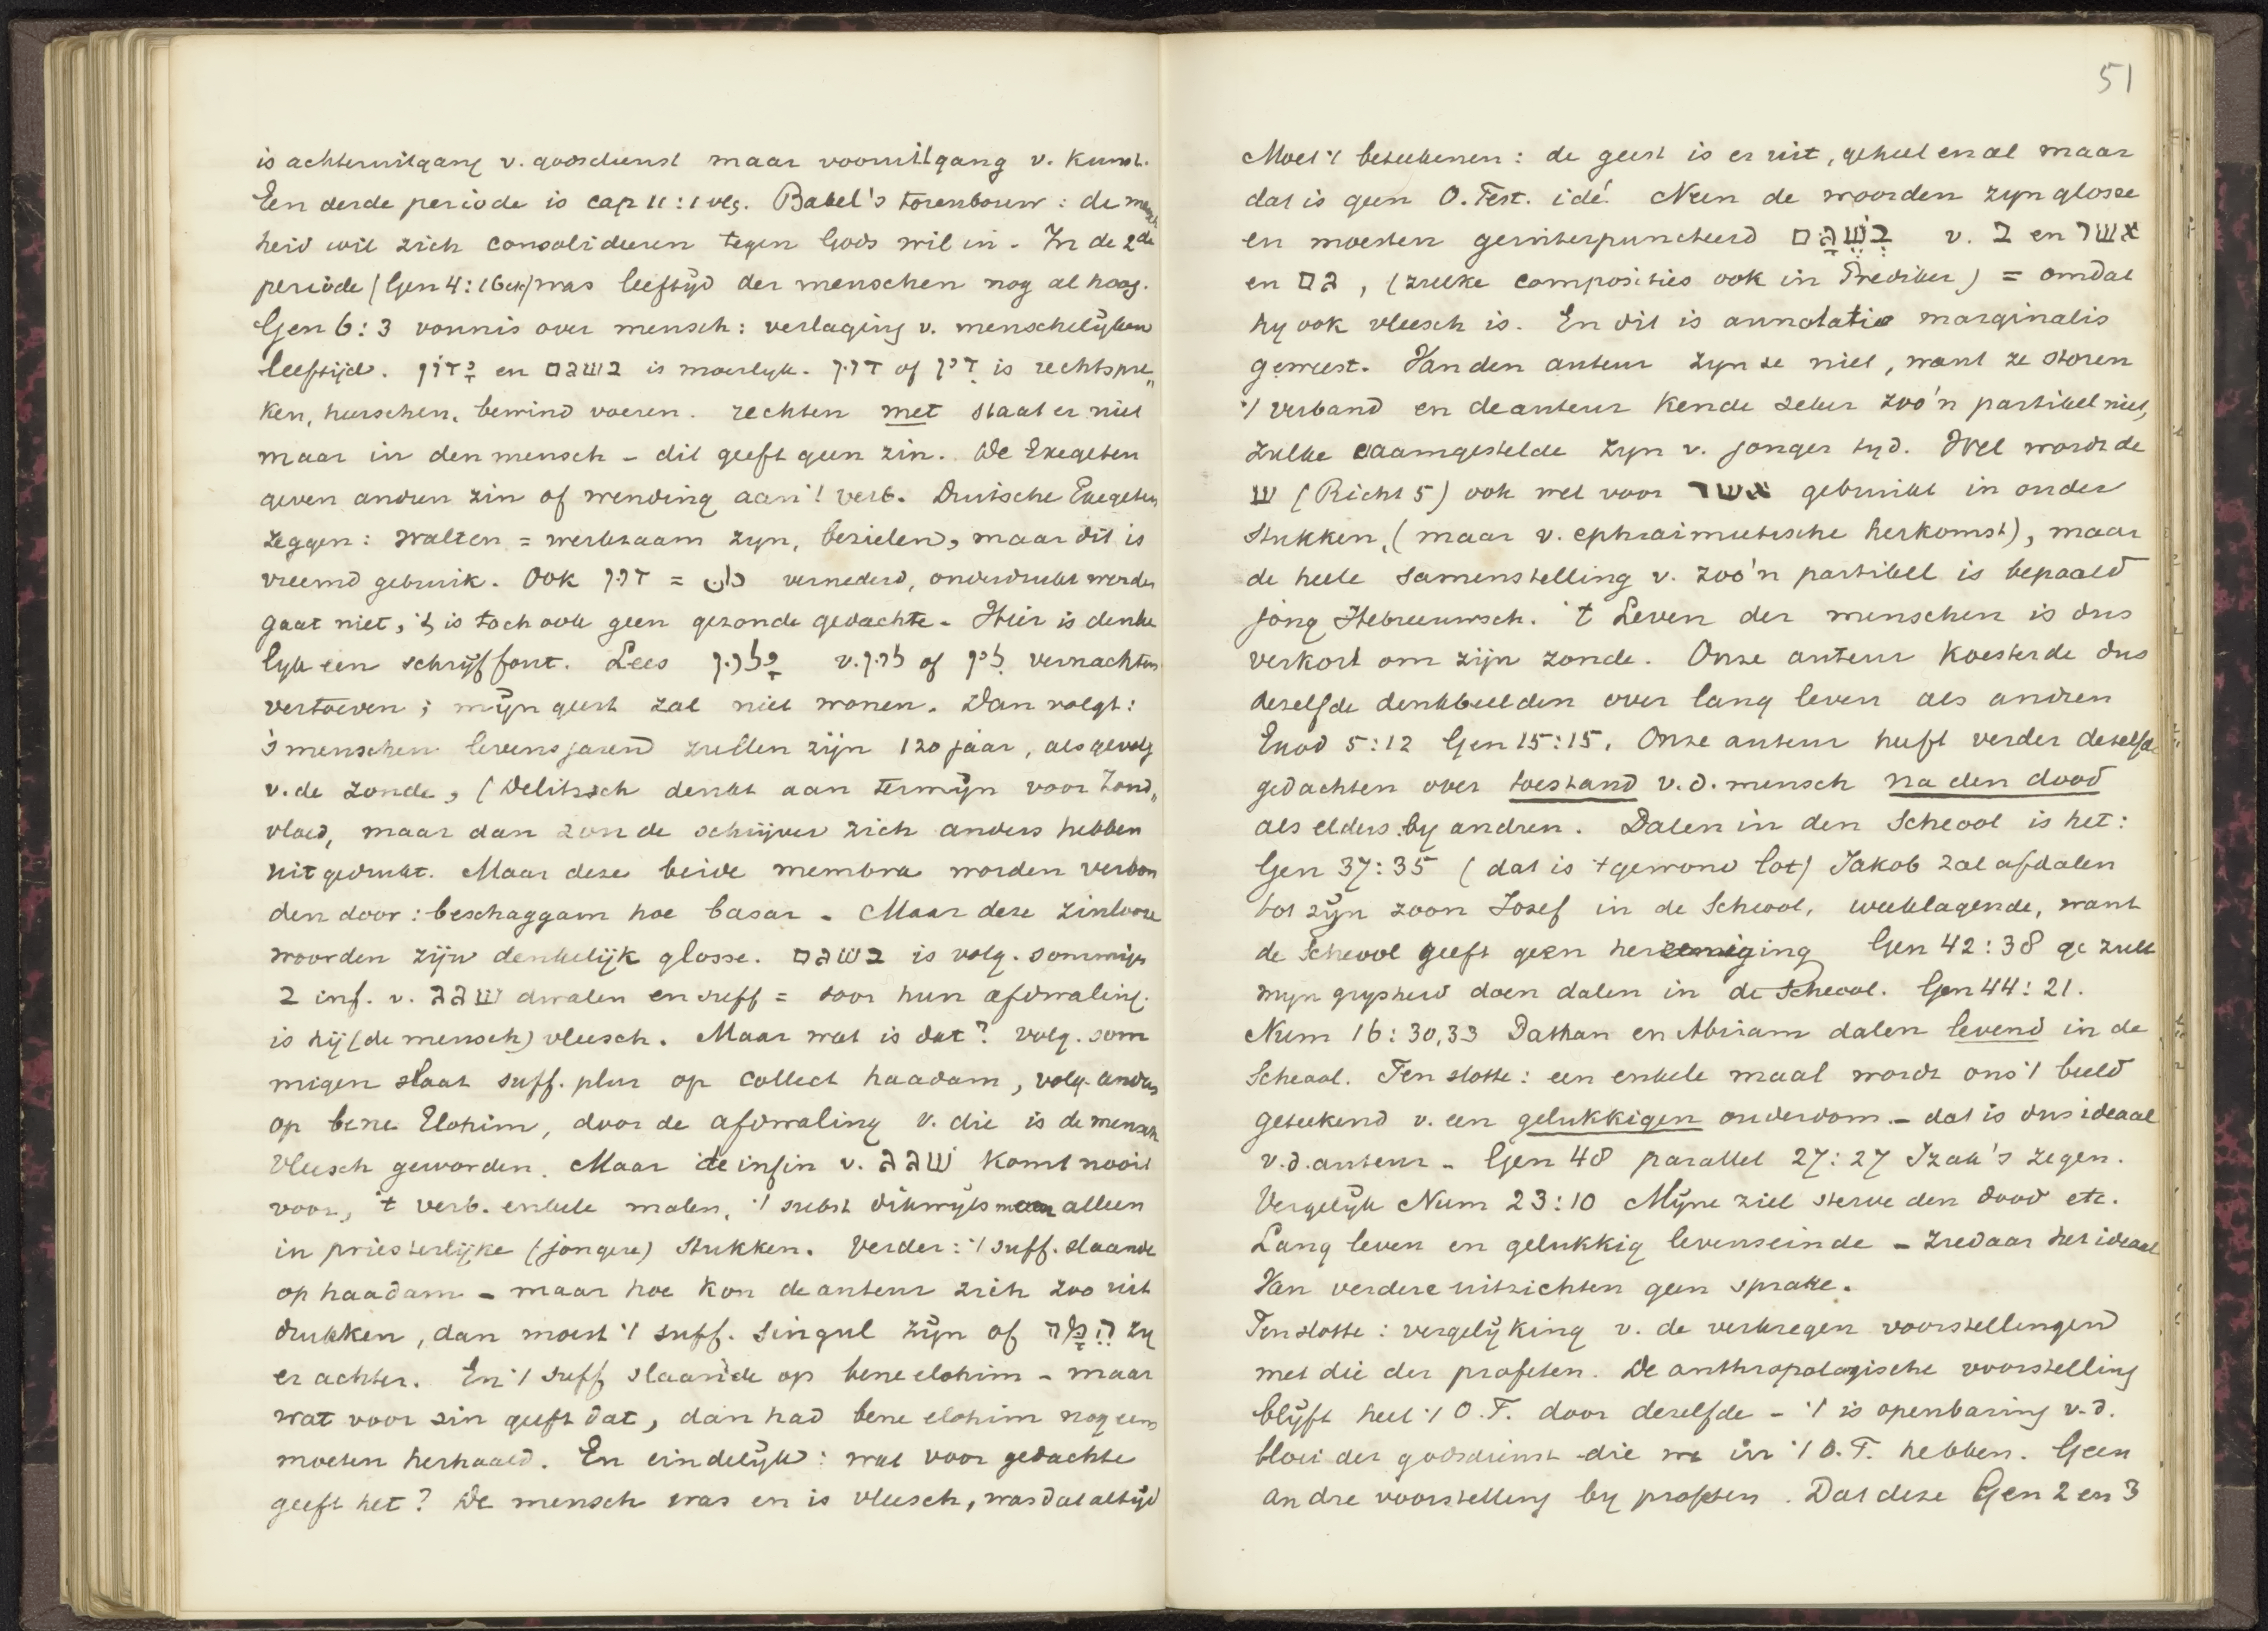 is achteruitgang v. godsdienst maar vooruitgang v. kunst.
Een derde periode is cap 11:1 vlg. Babel's torenbouw: de mensch
heid wil zich consolideeren tegen Gods wil in. In de 2de
periode (Gen 4:16etc) was leeftijd der menschen nog al hoog.
Gen 6:3 vonnis over mensch: verlaging v. menschelijken
leeftijd. ידון en בשגם is moeilijk. דון of דין is rechtspre„
ken, heerschen, bewind voeren. rechten met staat er niet
maar in den mensch – dit geeft geen zin. De Exegeten
geven andren zin of wending aan 't verb. Duitsche Exegeten
zeggen: walten = werkzaam zijn, bezielen, maar dit is
vreemd gebruik. Ook דון = دان vernederd, onderdrukt worden
gaat niet, 't is toch ook geen gezonde gedachte. Hier is denke
lijk een schrijffout. Lees ילון v. לון of לין vernachten
vertoeven; mijn geest zal niet wonen. Dan volgt:
's menschen levensjaren zullen zijn 120 jaar, als gevolg
v. de zonde, (Delitzsch denkt aan termijn voor Zond„
vloed, maar dan zou de schrijver zich anders hebben
uitgedrukt. Maar deze beide membra worden verbon
den door: beschaggam hoe basar. Maar deze zinlooze
woorden zijn denkelijk glosse. בשגם is volg. sommigen
ב inf. v. שגג dwalen en suff = door hun afdwaling.
is hij (de mensch) vleesch. Maar wat is dat? volg. som
migen slaat suff. plur op collect haadam, volg. andren
op bene Elohim, door de afdwaling v. die is de mensch
vleesch geworden. Maar de infin v. שגג komt nooit
voor, 't verb. enkele malen, 't subst dikwijls maar alleen
in priesterlijke (jongere) stukken. Verder: 't suff. slaande
op haadam – maar hoe kon de auteur zich zoo uit
drukken, dan moest 't suff. singul zijn of המה zij
er achter. En 't suff slaande op bene elohim – maar
wat voor zin geeft dat, dan had bene elohim nog eens
moeten herhaald. En eindelijk: wat voor gedachte
geeft het? De mensch was en is vleesch, was dat altijd
51
Moet 't beteekenen: de geest is er uit, geheel en al maar
dat is geen O. Test. idé! Neen de woorden zijn glosse
en moesten geinterpuncteerd בְּשֶׁגַּם v. ב en אשר
en גם, (zulke composities ook in Prediker) = omdat
hij ook vleesch is. En dit is annotatio marginalis
geweest. Van den auteur zijn ze niet, want ze storen
't verband en de auteur kende zeker zoo'n partikel niet,
zulke saamgestelde zijn v. jonger tijd. Wel wordt de
ש (Richt 5) ook wel voor אשר gebruikt in ouder
stukken, (maar v. ephraimietische herkomst), maar
de heele samenstelling v. zoo'n partikel is bepaald
jong Hebreeuwsch. 't Leven der menschen is dus
verkort om zijn zonde. Onze auteur koesterde dus
dezelfde denkbeelden over lang leven als andren
Exod 5:12 Gen 15:15. Onze auteur heeft verder dezelfde
gedachten over toestand v. d. mensch na den dood
als elders by andren. Dalen in den Scheool is het:
Gen 37:35 (dat is 't gewone lot) Jakob zal afdalen
tot zijn zoon Jozef in de Scheool, weeklagende, want
de Scheool geeft geen hereeniging Gen 42:38 ge zult
mijn grijsheid doen dalen in de Scheool. Gen 44:21.
Num 16:30,33 Dathan en Abiram dalen levend in de
Scheool. Ten slotte: een enkele maal wordt ons 't beeld
geteekend v. een gelukkigen ouderdom – dat is dus ideaal
v. d. auteur – Gen 48 parallel 27:27 Izak's zegen.
Vergelijk Num 23:10 Mijne ziel sterve den dood etc.
Lang leven en gelukkig levenseinde – ziedaar het ideaal
Van verdere uitzichten geen sprake.
Ten slotte: vergelijking v. de verkregen voorstellingen
met die der profeten. De anthropologische voorstelling
blijft heel 't O.T. door dezelfde – 't is openbaring v. d.
bloei der godsdienst die we in 't O.T. hebben. Geen
andre voorstelling by profeten. Dat deze Gen 2 en 3